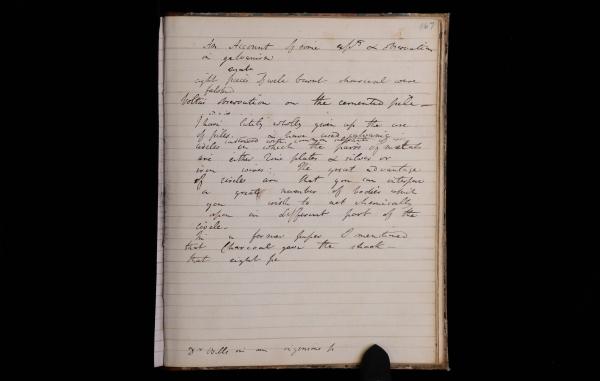 167
An Account of some expts & observations
on galvanism
scale
eight pieces of well burnt charcoal were
Voltas observation on the cemented pile —
I have lately wholly given up the use
of piles & have used galvanic
circles in which the pairs of metals
are either zinc plates & silver or
iron wires: The great advantage
of circles are that you can interpose
a great number of bodies which
you wish to act chemically
upon in different part of the
circle.
In a former paper I mentioned
that Charcoal gave the shock —
that eight pe
Dr Wells in an ingenious p